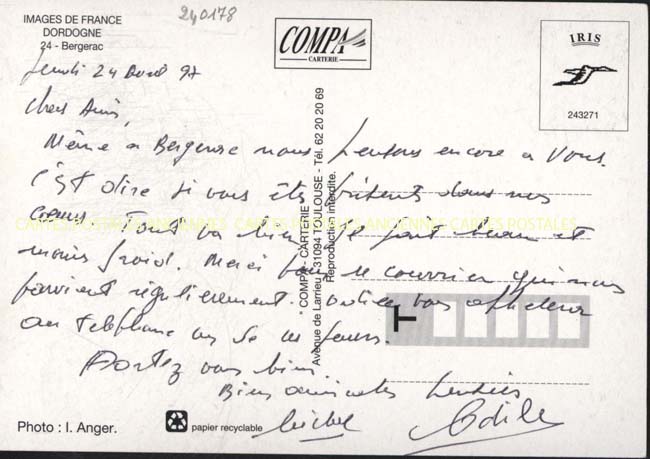 IMAGES DE FRANCE
DORDOGNE
24 - Bergerac
240178
COMPA
CARTERIE
IRIS
243271
Jeudi 24 Avril 97
Chers Amis,
Même à Bergerac nous pensons encore à vous.
C'est dire si vous êtes présents dans nos
coeurs. Tout va bien. Il fait beau et
moins froid. Merci pour le courrier qui nous
parvient régulièrement. vous
au téléphone un de ces jours.
Portez vous bien.
Bien amicales pensées
Michel Odile
CARTES POSTALES ANCIENNES CARTES POSTALES ANCIENNES CARTES POSTALES
" COMPA - CARTERIE "
Avenue de Larrieu - 31094 TOULOUSE - Tél. 62 20 20 69
Reproduction interdite.
T
Photo : I. Anger.
papier recyclable